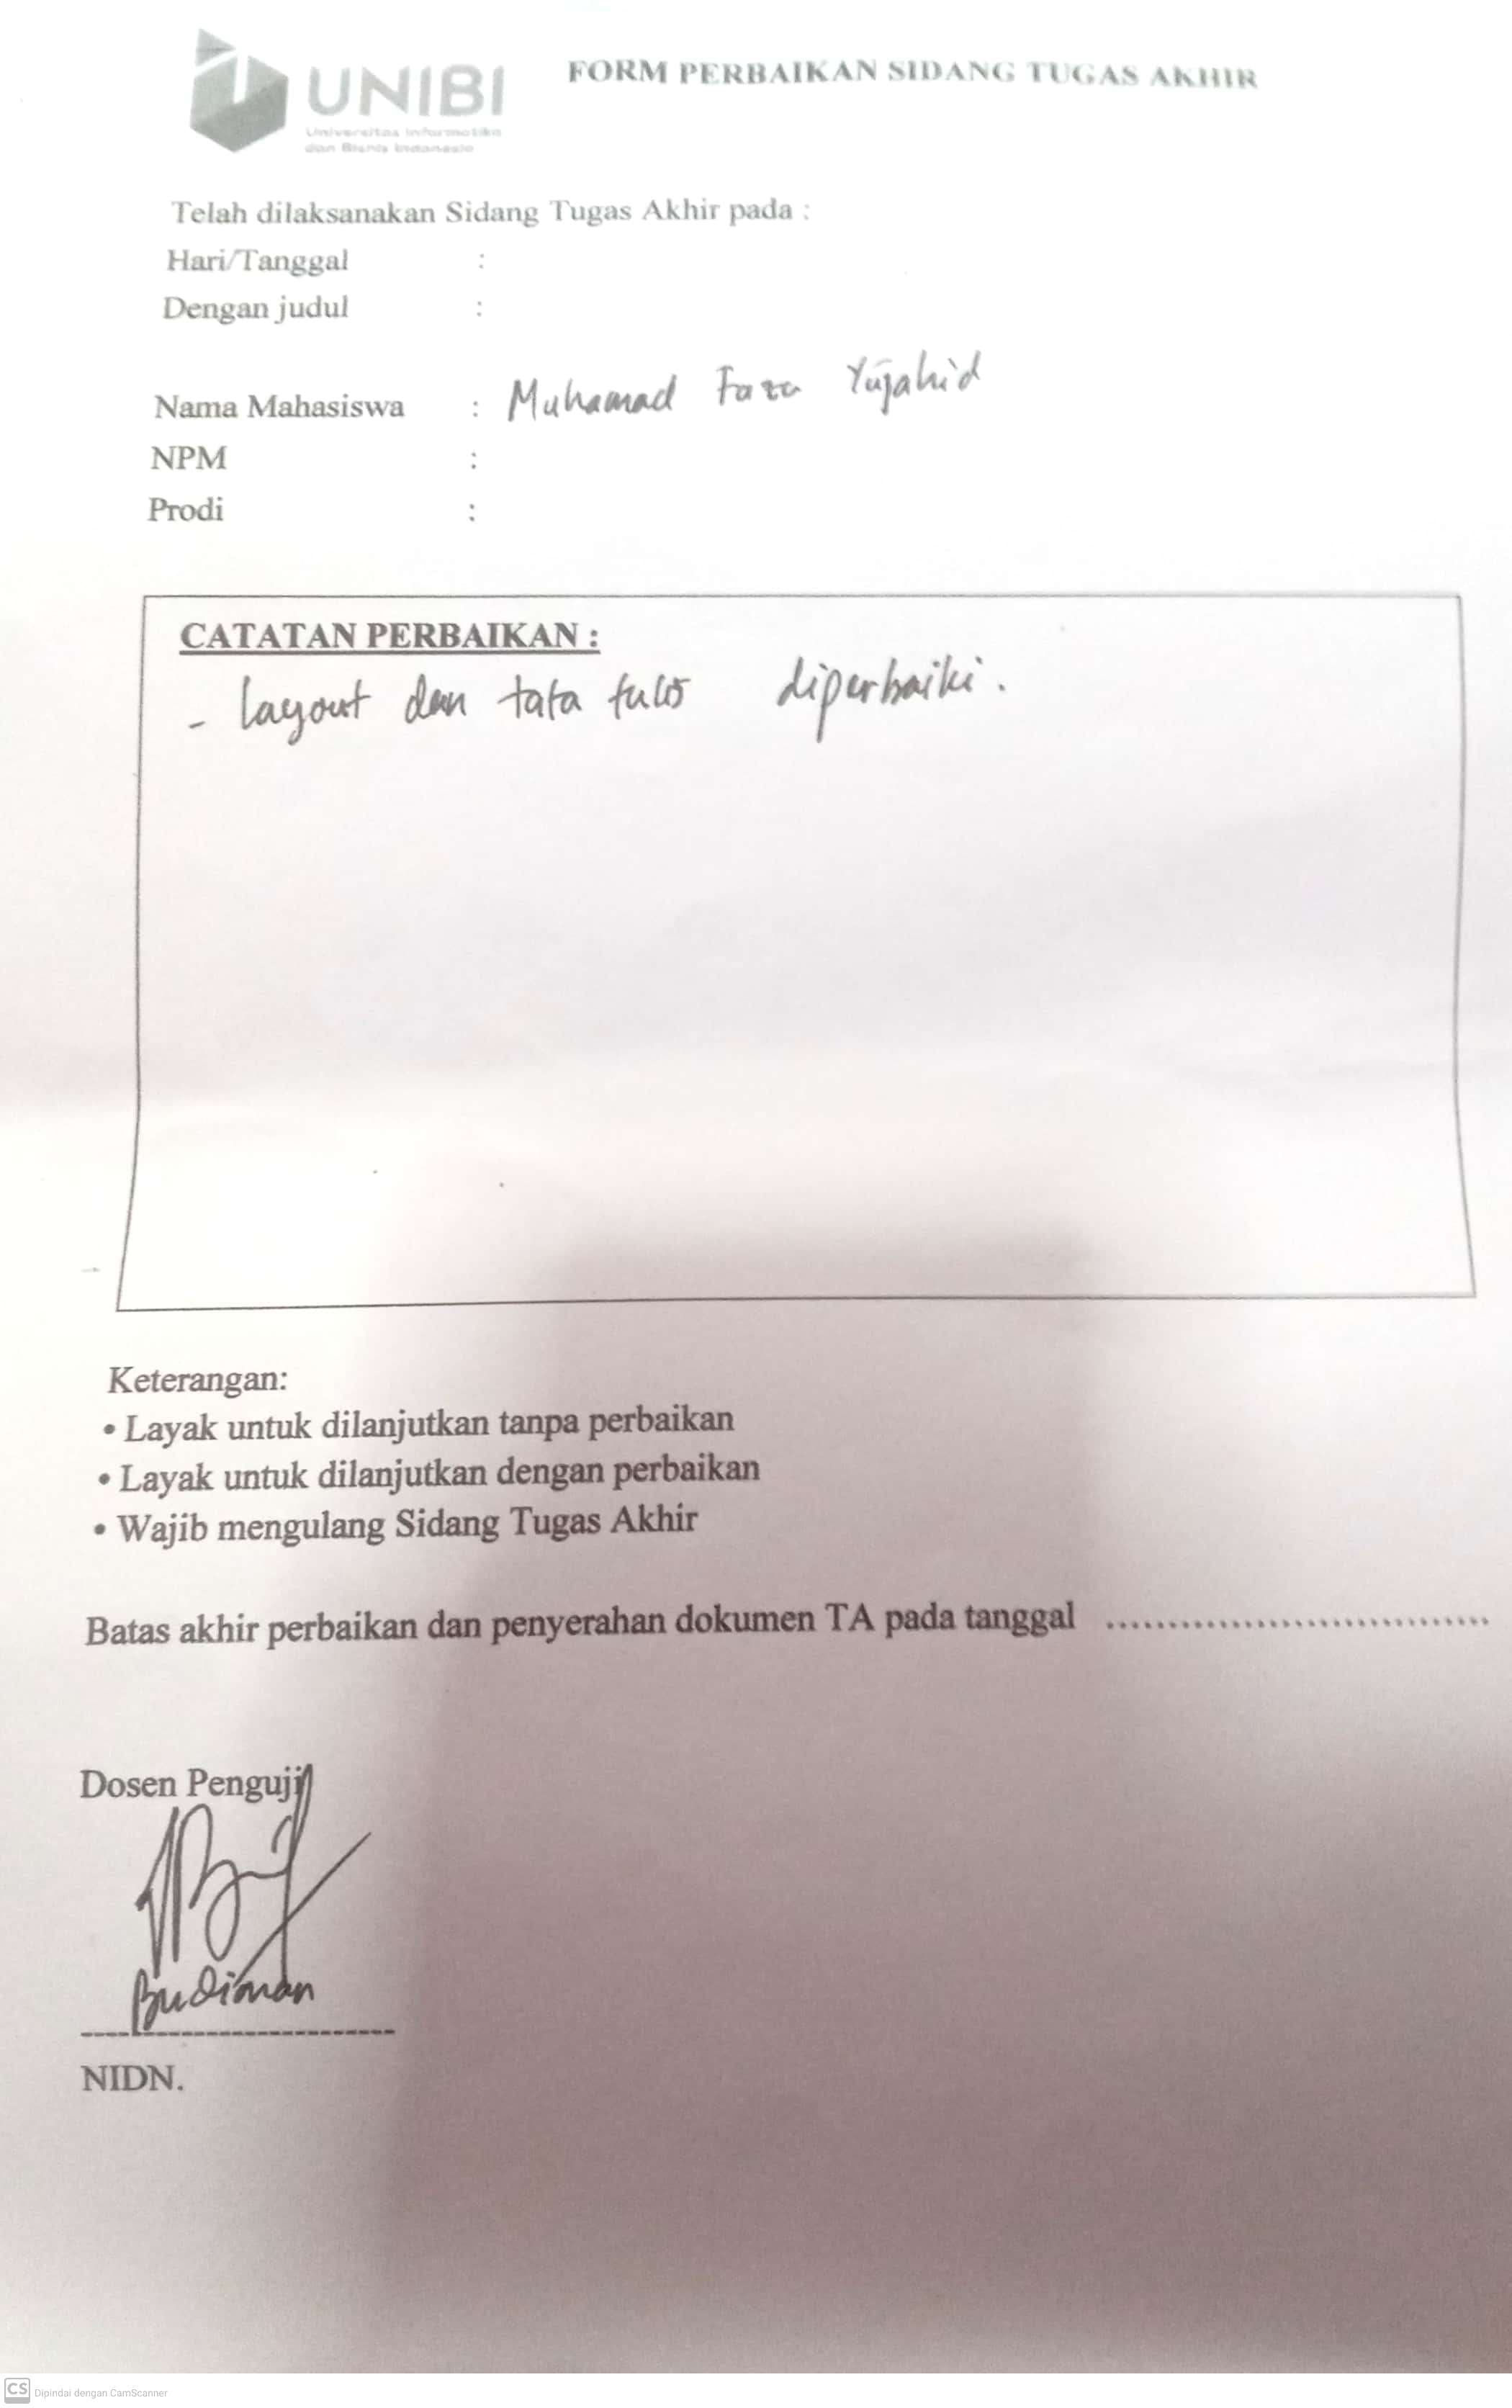 UNIBI
Universitas Informatika
dan Bisnis Indonesia
FORM PERBAIKAN SIDANG TUGAS AKHIR
Telah dilaksanakan Sidang Tugas Akhir pada :
Hari/Tanggal :
Dengan judul :
Nama Mahasiswa : Muhamad Faza Yujahid
NPM :
Prodi :
CATATAN PERBAIKAN :
- layout dan tata tulis diperbaiki.
Keterangan:
• Layak untuk dilanjutkan tanpa perbaikan
• Layak untuk dilanjutkan dengan perbaikan
• Wajib mengulang Sidang Tugas Akhir
Batas akhir perbaikan dan penyerahan dokumen TA pada tanggal ..............................
Dosen Penguji
Budiman
NIDN.
CS Dipindai dengan CamScanner